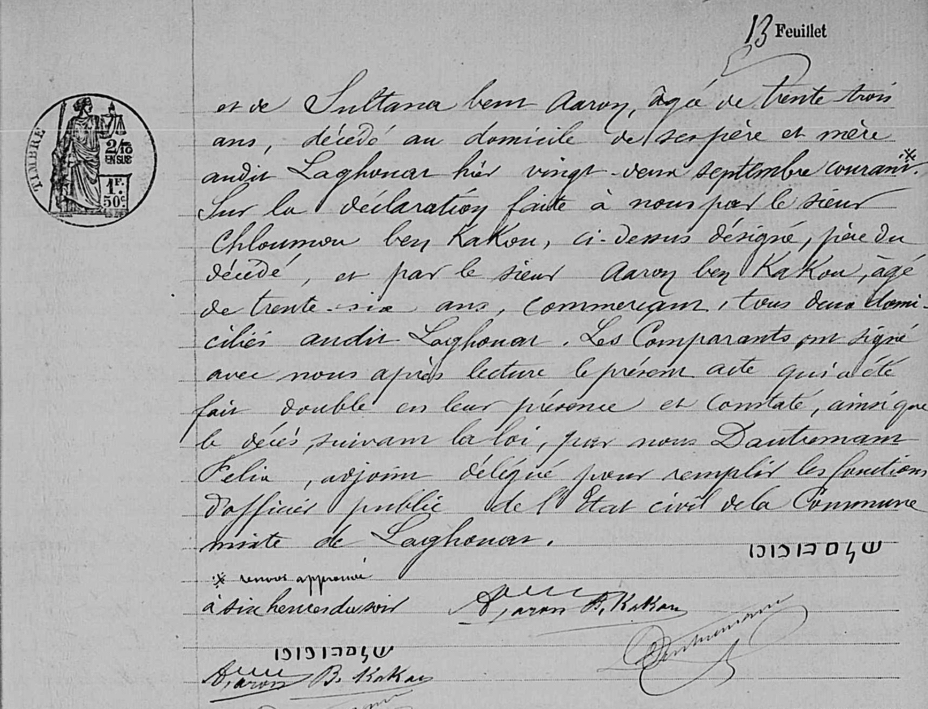 13 Feuillet
TIMBRE
2/10
EN SUS
1F.
50c
et de Sultana bent Aaron, âgé de trente trois
ans, décédé au domicile de ses père et mère
audit Laghouat hier vingt-deux septembre courant.*
Sur la déclaration faite à nous par le sieur
Chloumou ben Kakou, ci-dessus désigné, père du
décédé, et par le sieur Aaron ben Kakou, âgé
de trente-six ans, commerçant, tous deux domi-
ciliés audit Laghouat. Les Comparants ont signé
avec nous après lecture le présent acte qui a été
fait double en leur présence et constaté, ainsi que
le décès, suivant la loi, par nous Dautremant
Felix, adjoint délégué pour remplir les fonctions
d'officier public de l'Etat civil de la Commune
mixte de Laghouat.
* renvoi approuvé
à six heures du soir
Aaron B. Kakou
Dautremant
Aaron B. Kakou